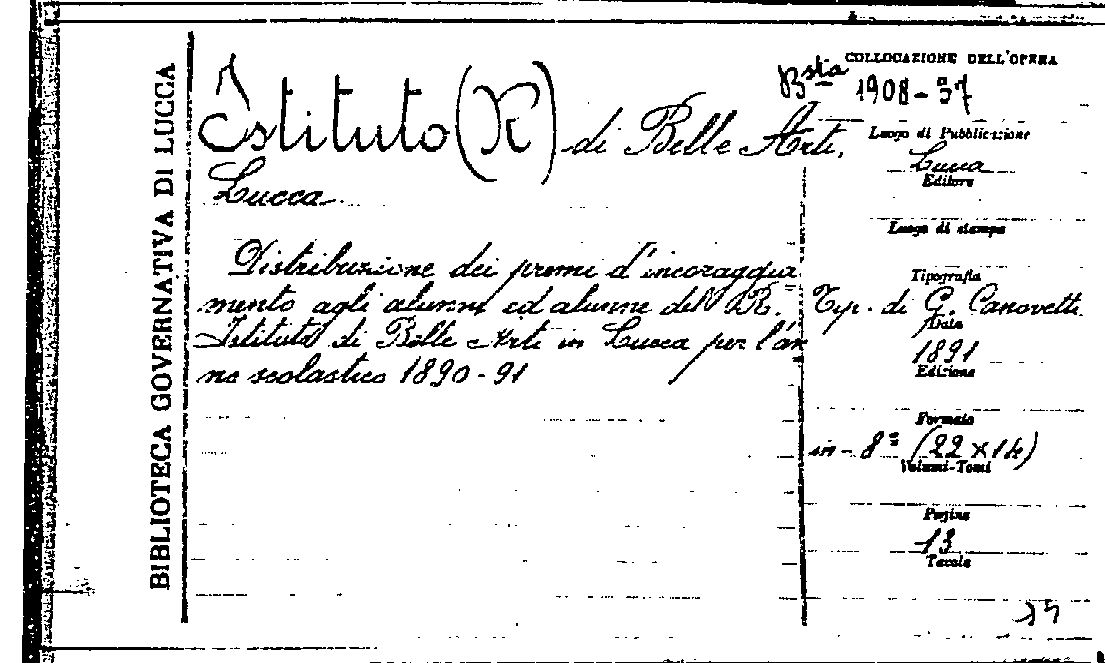 BIBLIOTECA GOVERNATIVA DI LUCCA
Istituto (R) di Belle Arti,
Lucca
Distribuzione dei premi d'incoraggia
mento agli alunni ed alunne del R.
Istituto di Belle Arti in Lucca per l'an
no scolastico 1890-91
COLLOCAZIONE DELL'OPERA
Bsta 1908-37
Luogo di Pubblicazione
Lucca
Editore
Luogo di stampa
Tipografia
Tip. di G. Canovetti
Data
1891
Edizione
Formato
in-8º (22 x 14)
Volumi-Tomi
Pagine
13
Tavole